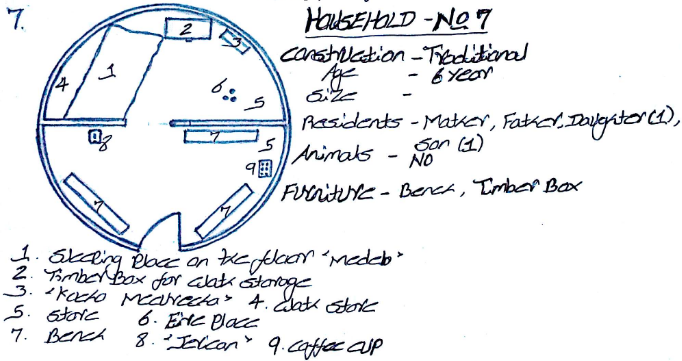 7.
HOUSEHOLD - No 7
Construction - Traditional
Age - 6 year
Size -
Residents - Mother, Father, Daughter (1),
Son (1)
Animals - NO
Furniture - Bench, Timber Box
1
2
3
4
5
6
7
8
5
9
7
7
1. Sleeping Place on the floor "Medeb"
2. Timber Box for cloth storage
3. "Kocho Medrecha" 4. cloth store
5. Store 6. Fire Place
7. Bench 8. "Jerican" 9. coffee cup